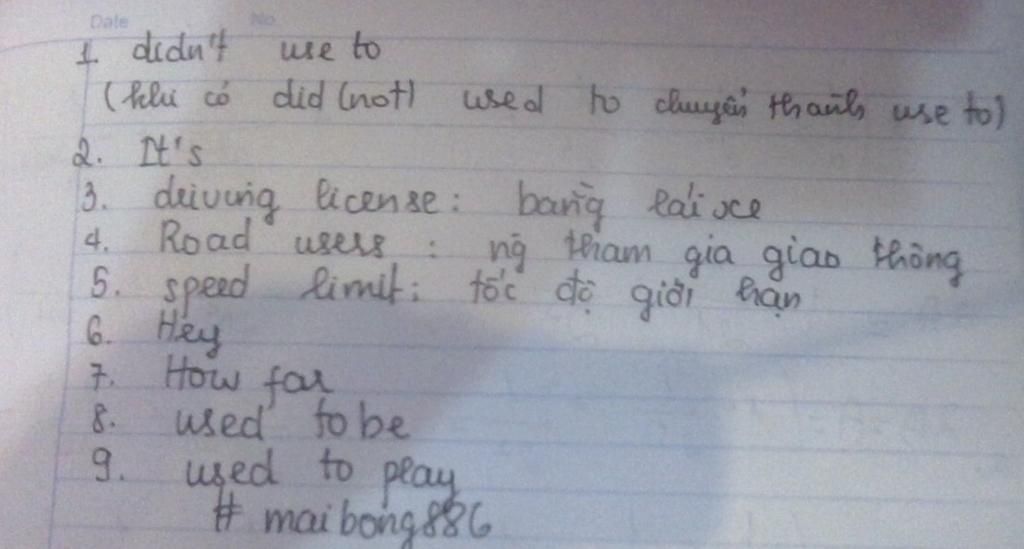 Date No
1. didn't use to
(khi có did (not) used to chuyển thành use to)
2. It's
3. driving license: bằng lái xe
4. Road users : ng tham gia giao thông
5. speed limit: tốc độ giới hạn
6. Hey
7. How far
8. used to be
9. used to play
# maibong886